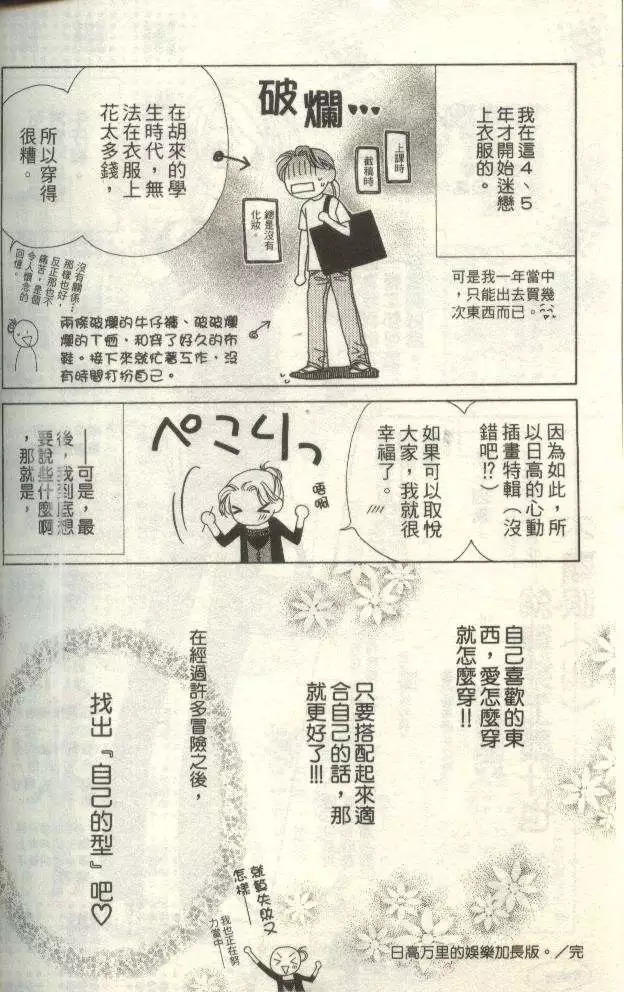 我在這4、5
年才開始迷戀
上衣服的。
可是我一年當中
，只能出去買幾
次東西而已。
破爛…
上課時
截稿時
總是沒有
化妝。
在胡來的學
生時代，無
法在衣服上
花太多錢，
所以穿得
很糟。
兩條破爛的牛仔褲、破破爛
爛的T恤，和穿了好久的布
鞋。接下來就忙著工作，沒
有時間打扮自己。
沒有關係…
那樣也好，
反正那也不
痛苦，是個
令人懷念的
回憶。
因為如此，所
以日高的心動
插畫特輯（沒
錯吧!?）
如果可以取悅
大家，我就很
幸福了。
ぺこりっ
唔啊
——可是，最
後，我到底想
要說些什麼啊
，那就是，
自己喜歡的東
西，愛怎麼穿
就怎麼穿!!
只要搭配起來適
合自己的話，那
就更好了!!!
在經過許多冒險之後，
找出『自己的型』吧♡
就算失敗又
怎樣——
我也正在努
力當中——
日高万里的娛樂加長版。／完